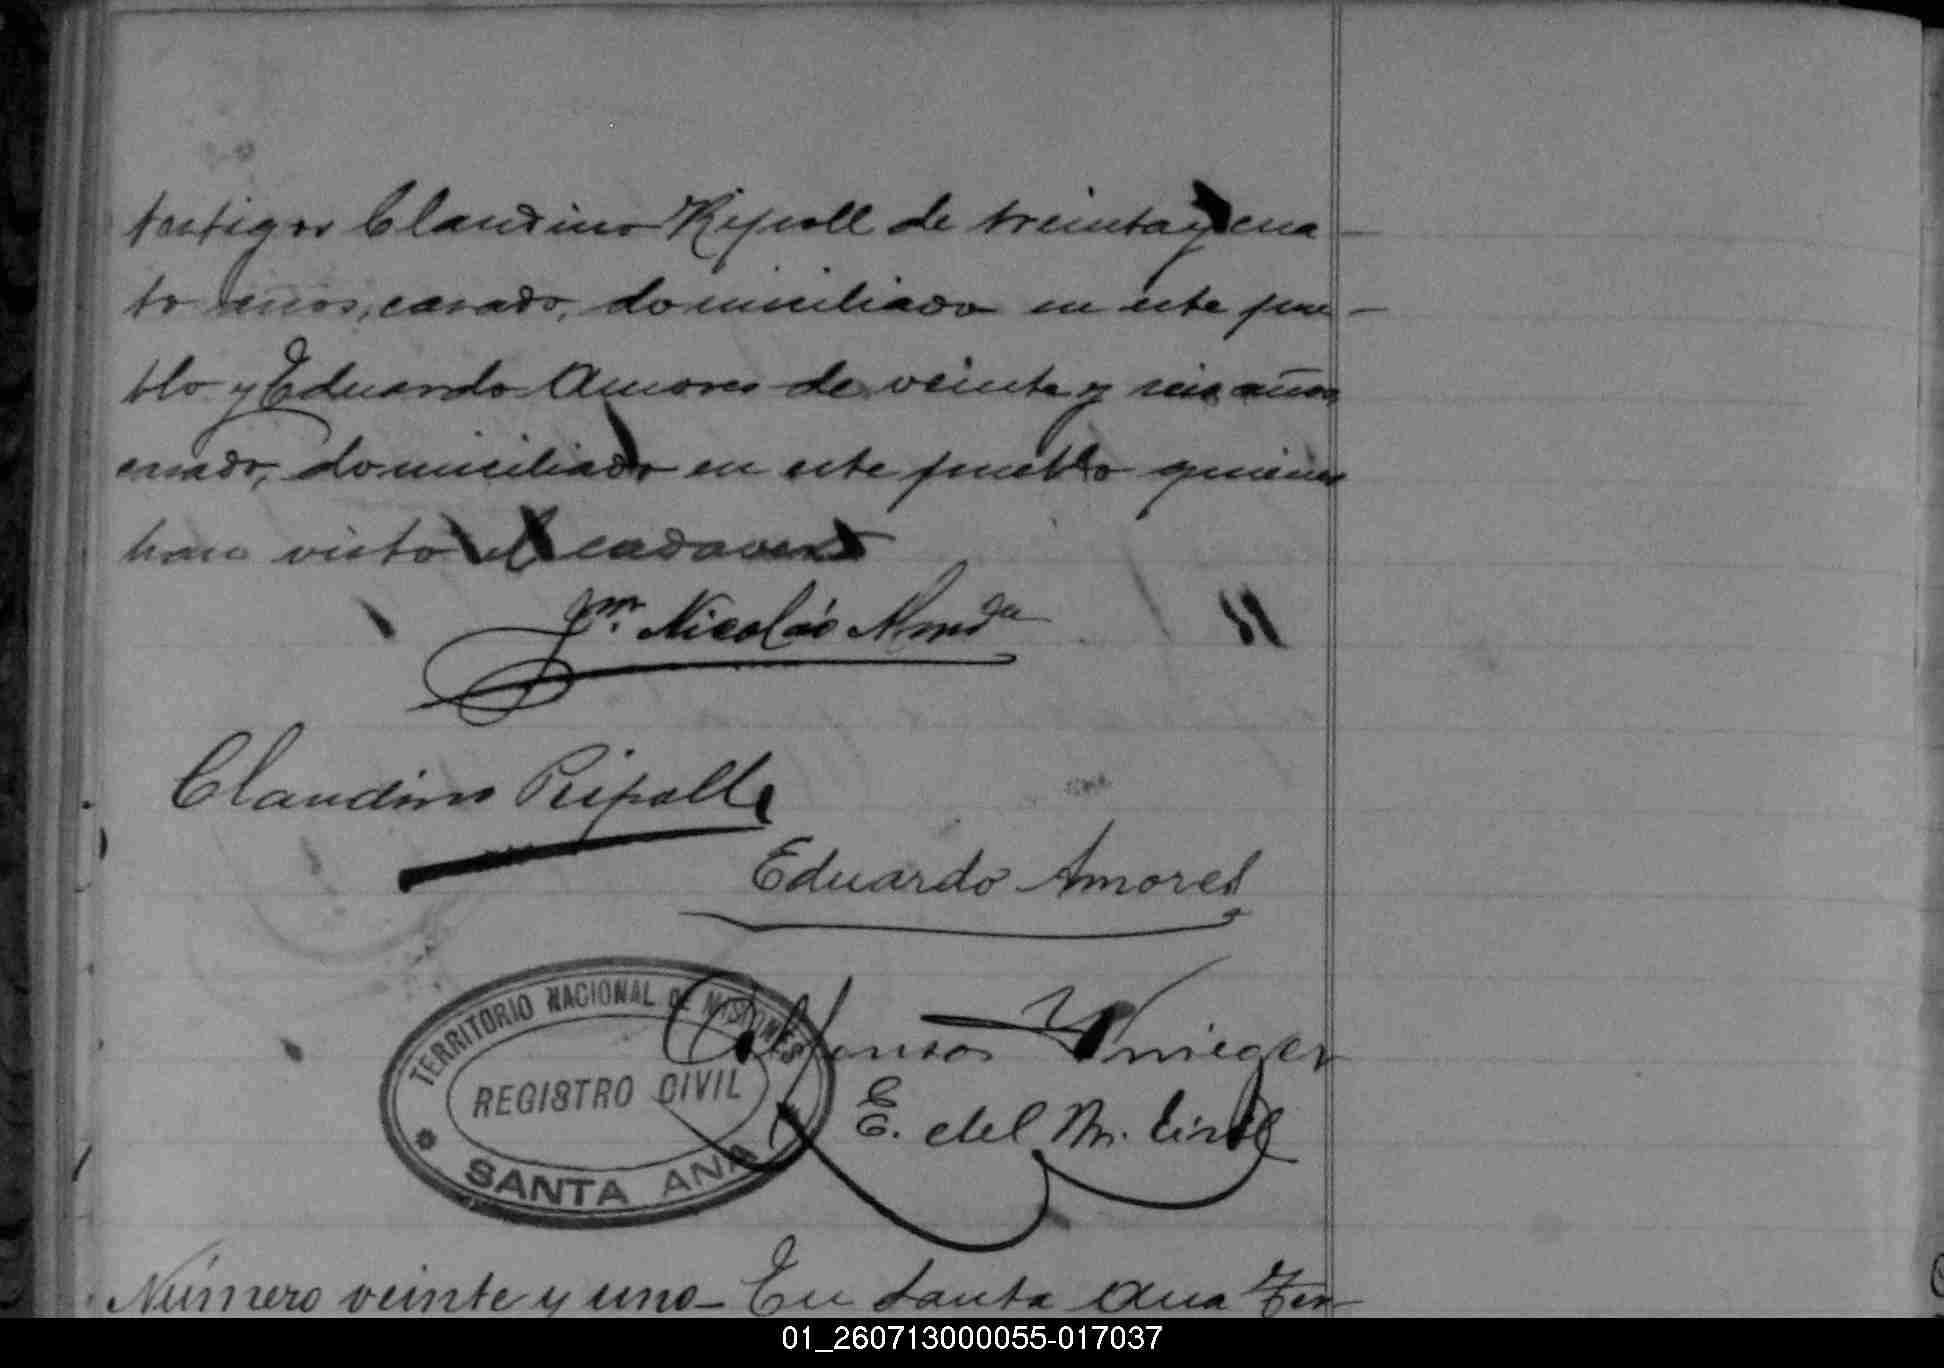 testigos Claudino Ripoll de treinta y cua
tro años, casado, domiciliado en este pue
blo y Eduardo Amores de veinte y seis años
casado, domiciliado en este pueblo quienes
han visto el cadaver
Jn. Nicolás
Claudino Ripoll
Eduardo Amores
TERRITORIO NACIONAL DE MISIONES
REGISTRO CIVIL
SANTA ANA
Alfonso Krieger
E. del R. Civil
Número veinte y uno - En Santa Ana Ter
01_260713000055-017037